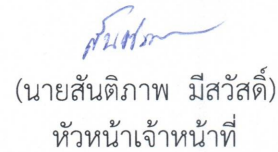 (นายสันติภาพ  มีสวัสดิ์)
หัวหน้าเจ้าหน้าที่